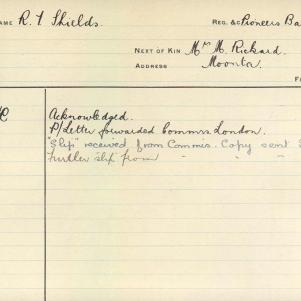 NAME R. T Shields. REG. &c Pioneers Ba
NEXT OF KIN Mrs M. Rickard.
ADDRESS Moonta.
F
Acknowledged.
P/Letter forwarded Commrs London.
"Slip" received from Commrs. Copy sent
Further slip from " " "